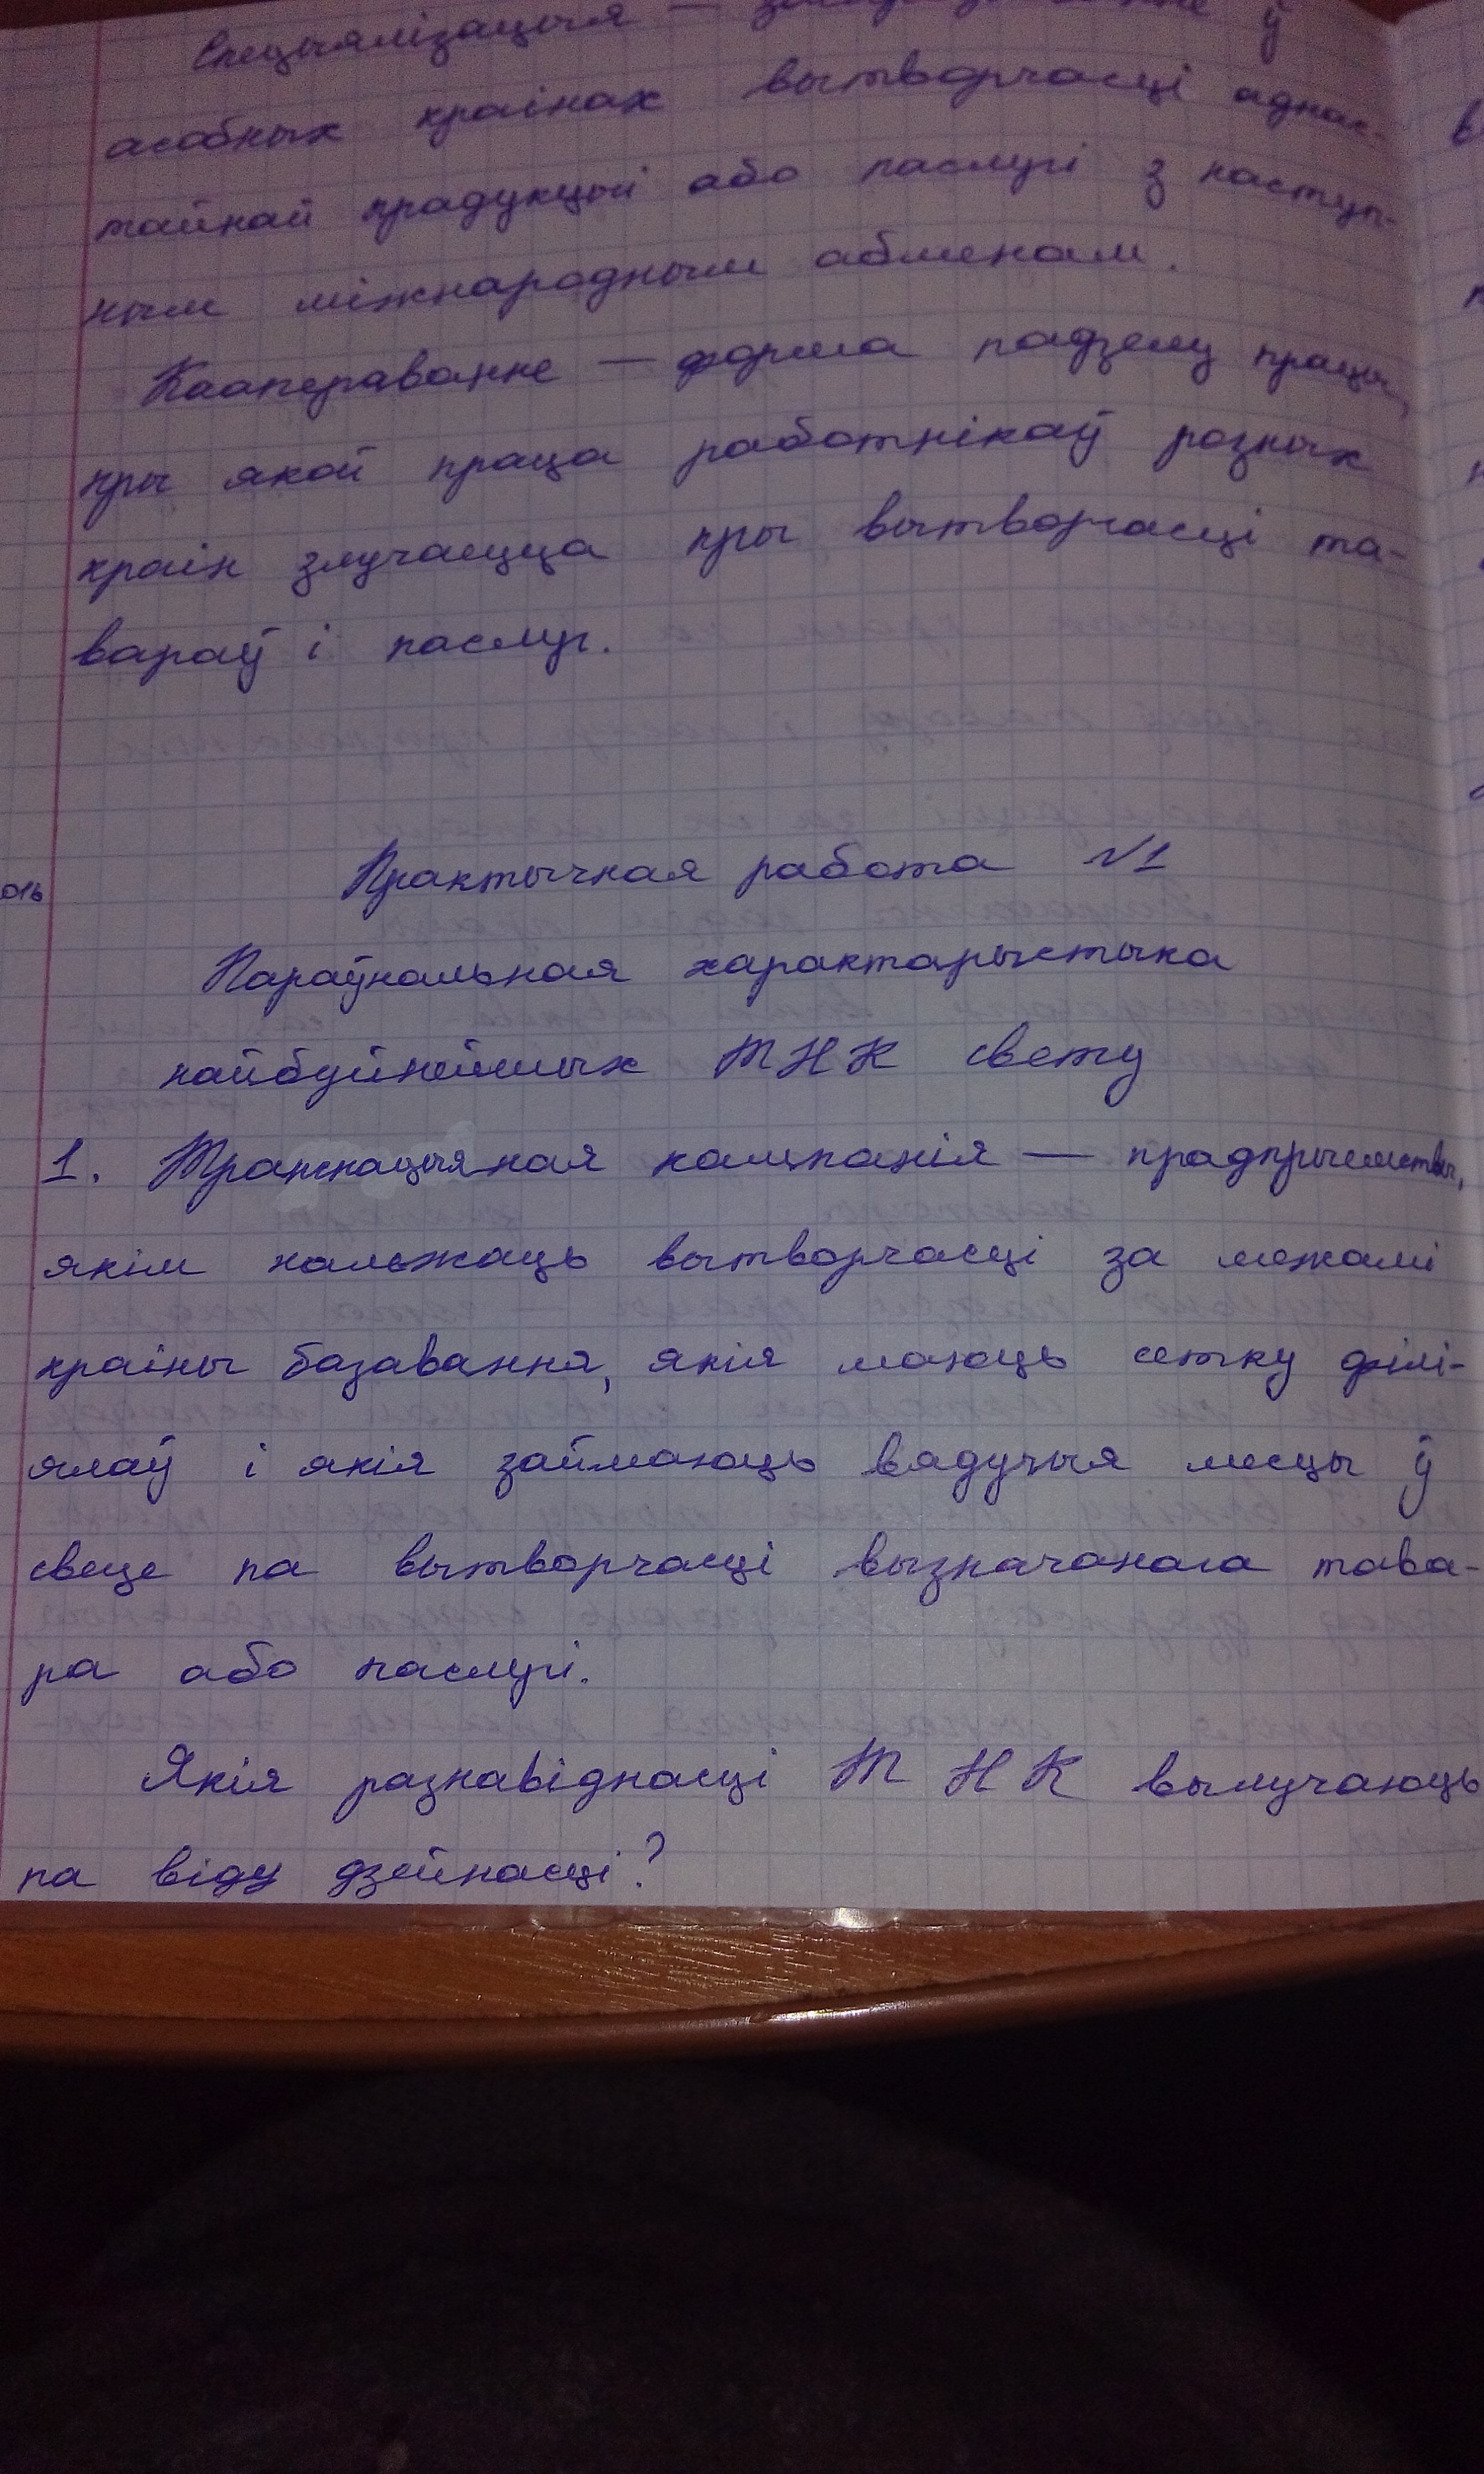 Спецыялізацыя — ў
асобных краінах вытворчасці аднас-
тайнай прадукцыі або паслугі з наступ-
ным міжнародным абменам.
Кааператванне — форма падзелу працы,
пры якой праца работнікаў розных
краін злучаецца пры вытворчасці та-
вараў і паслуг.
Практычная работа N1
016
Параўнальная характарыстыка
найбуйнейшых ТНК свету
1. Транснацыяная кампанія — прадпрыемствы,
якім належаць вытворчасці за межамі
краіны базавання, якія маюць сетку філі-
ялаў і якія займаюць вядучыя месцы ў
свеце па вытворчасці вызначанага тава-
ра або паслугі.
Якія разнавіднасці ТНК вылучаюць
па віду дзейнасці?